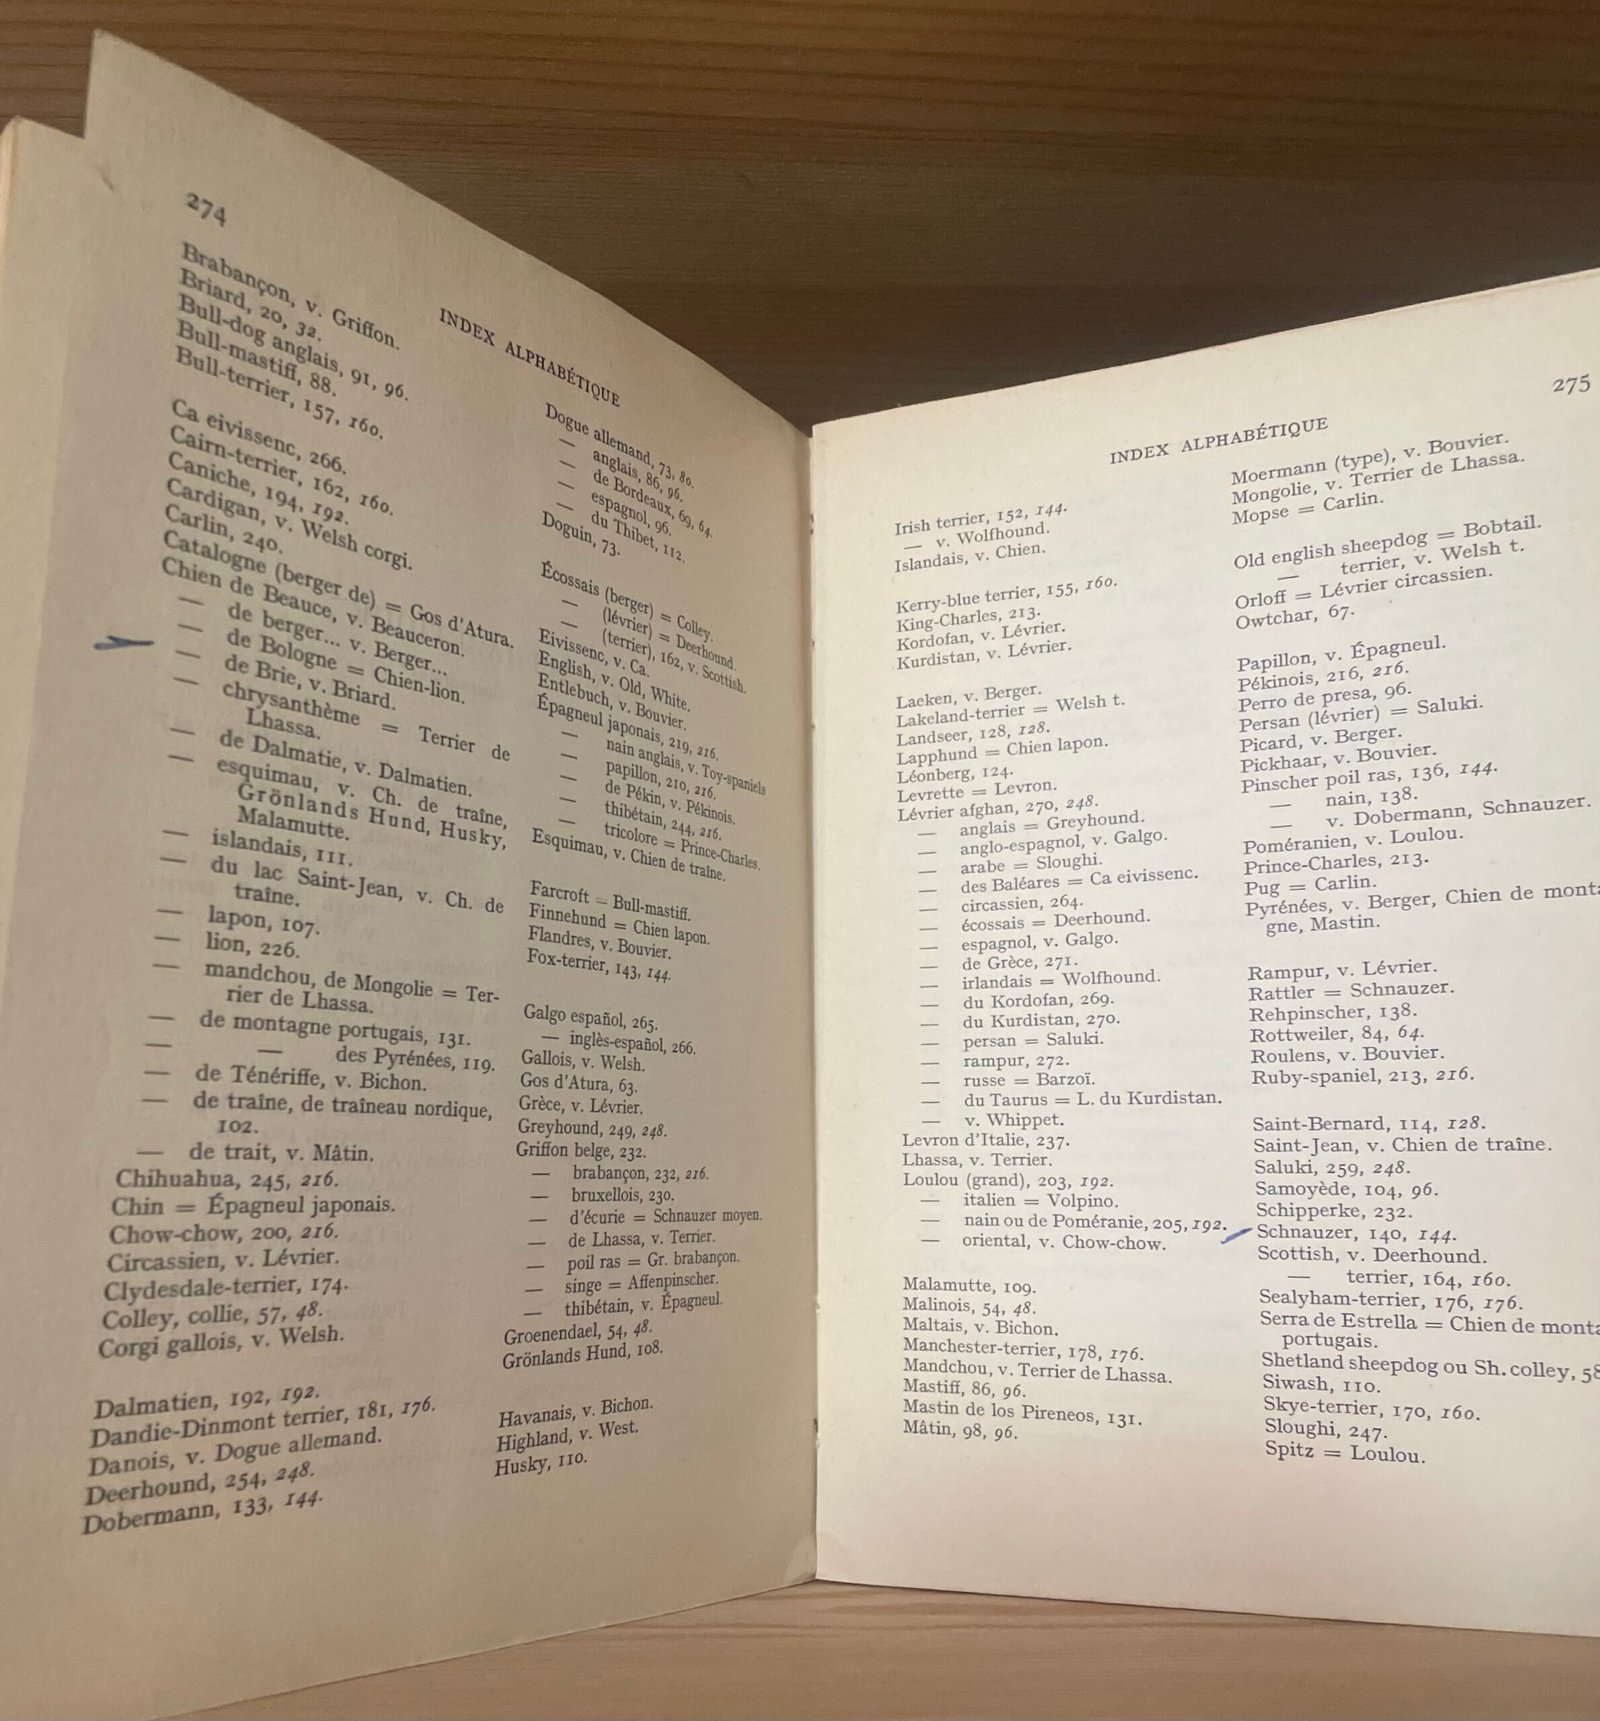 274
INDEX ALPHABÉTIQUE
Brabançon, v. Griffon.
Briard, 20, 32.
Bull-dog anglais, 91, 96.
Bull-mastiff, 88.
Bull-terrier, 157, 160.
Ca eivissenc, 266.
Cairn-terrier, 162, 160.
Caniche, 194, 192.
Cardigan, v. Welsh corgi.
Carlin, 240.
Catalogne (berger de) = Gos d'Atura.
Chien de Beauce, v. Beauceron.
— de berger... v. Berger...
— de Bologne = Chien-lion.
— de Brie, v. Briard.
— chrysanthème = Terrier de
Lhassa.
— de Dalmatie, v. Dalmatien.
— esquimau, v. Ch. de traîne,
Grönlands Hund, Husky,
Malamutte.
— islandais, 111.
— du lac Saint-Jean, v. Ch. de
traîne.
— lapon, 107.
— lion, 226.
— mandchou, de Mongolie = Ter-
rier de Lhassa.
— de montagne portugais, 131.
— — des Pyrénées, 119.
— de Ténériffe, v. Bichon.
— de traîne, de traîneau nordique,
102.
— de trait, v. Mâtin.
Chihuahua, 245, 216.
Chin = Épagneul japonais.
Chow-chow, 200, 216.
Circassien, v. Lévrier.
Clydesdale-terrier, 174.
Colley, collie, 57, 48.
Corgi gallois, v. Welsh.
Dalmatien, 192, 192.
Dandie-Dinmont terrier, 181, 176.
Danois, v. Dogue allemand.
Deerhound, 254, 248.
Dobermann, 133, 144.
Dogue allemand, 73, 80.
— anglais, 86, 96.
— de Bordeaux, 69, 64.
— espagnol, 96.
— du Thibet, 112.
Doguin, 73.
Écossais (berger) = Colley.
— (lévrier) = Deerhound.
— (terrier), 162, v. Scottish.
Eivissenc, v. Ca.
English, v. Old, White.
Entlebuch, v. Bouvier.
Épagneul japonais, 219, 216.
— nain anglais, v. Toy-spaniels
— papillon, 210, 216.
— de Pékin, v. Pékinois.
— thibétain, 244, 216.
— tricolore = Prince-Charles.
Esquimau, v. Chien de traîne.
Farcroft = Bull-mastiff.
Finnehund = Chien lapon.
Flandres, v. Bouvier.
Fox-terrier, 143, 144.
Galgo español, 265.
— inglès-español, 266.
Gallois, v. Welsh.
Gos d'Atura, 63.
Grèce, v. Lévrier.
Greyhound, 249, 248.
Griffon belge, 232.
— brabançon, 232, 216.
— bruxellois, 230.
— d'écurie = Schnauzer moyen.
— de Lhassa, v. Terrier.
— poil ras = Gr. brabançon.
— singe = Affenpinscher.
— thibétain, v. Épagneul.
Groenendael, 54, 48.
Grönlands Hund, 108.
Havanais, v. Bichon.
Highland, v. West.
Husky, 110.
275
INDEX ALPHABÉTIQUE
Irish terrier, 152, 144.
— v. Wolfhound.
Islandais, v. Chien.
Kerry-blue terrier, 155, 160.
King-Charles, 213.
Kordofan, v. Lévrier.
Kurdistan, v. Lévrier.
Laeken, v. Berger.
Lakeland-terrier = Welsh t.
Landseer, 128, 128.
Lapphund = Chien lapon.
Léonberg, 124.
Levrette = Levron.
Lévrier afghan, 270, 248.
— anglais = Greyhound.
— anglo-espagnol, v. Galgo.
— arabe = Sloughi.
— des Baléares = Ca eivissenc.
— circassien, 264.
— écossais = Deerhound.
— espagnol, v. Galgo.
— de Grèce, 271.
— irlandais = Wolfhound.
— du Kordofan, 269.
— du Kurdistan, 270.
— persan = Saluki.
— rampur, 272.
— russe = Barzoï.
— du Taurus = L. du Kurdistan.
— v. Whippet.
Levron d'Italie, 237.
Lhassa, v. Terrier.
Loulou (grand), 203, 192.
— italien = Volpino.
— nain ou de Poméranie, 205, 192.
— oriental, v. Chow-chow.
Malamutte, 109.
Malinois, 54, 48.
Maltais, v. Bichon.
Manchester-terrier, 178, 176.
Mandchou, v. Terrier de Lhassa.
Mastiff, 86, 96.
Mastin de los Pireneos, 131.
Mâtin, 98, 96.
Moermann (type), v. Bouvier.
Mongolie, v. Terrier de Lhassa.
Mopse = Carlin.
Old english sheepdog = Bobtail.
— terrier, v. Welsh t.
Orloff = Lévrier circassien.
Owtchar, 67.
Papillon, v. Épagneul.
Pékinois, 216, 216.
Perro de presa, 96.
Persan (lévrier) = Saluki.
Picard, v. Berger.
Pickhaar, v. Bouvier.
Pinscher poil ras, 136, 144.
— nain, 138.
— v. Dobermann, Schnauzer.
Poméranien, v. Loulou.
Prince-Charles, 213.
Pug = Carlin.
Pyrénées, v. Berger, Chien de monta
gne, Mastin.
Rampur, v. Lévrier.
Rattler = Schnauzer.
Rehpinscher, 138.
Rottweiler, 84, 64.
Roulens, v. Bouvier.
Ruby-spaniel, 213, 216.
Saint-Bernard, 114, 128.
Saint-Jean, v. Chien de traîne.
Saluki, 259, 248.
Samoyède, 104, 96.
Schipperke, 232.
Schnauzer, 140, 144.
Scottish, v. Deerhound.
— terrier, 164, 160.
Sealyham-terrier, 176, 176.
Serra de Estrella = Chien de monta
portugais.
Shetland sheepdog ou Sh. colley, 58
Siwash, 110.
Skye-terrier, 170, 160.
Sloughi, 247.
Spitz = Loulou.